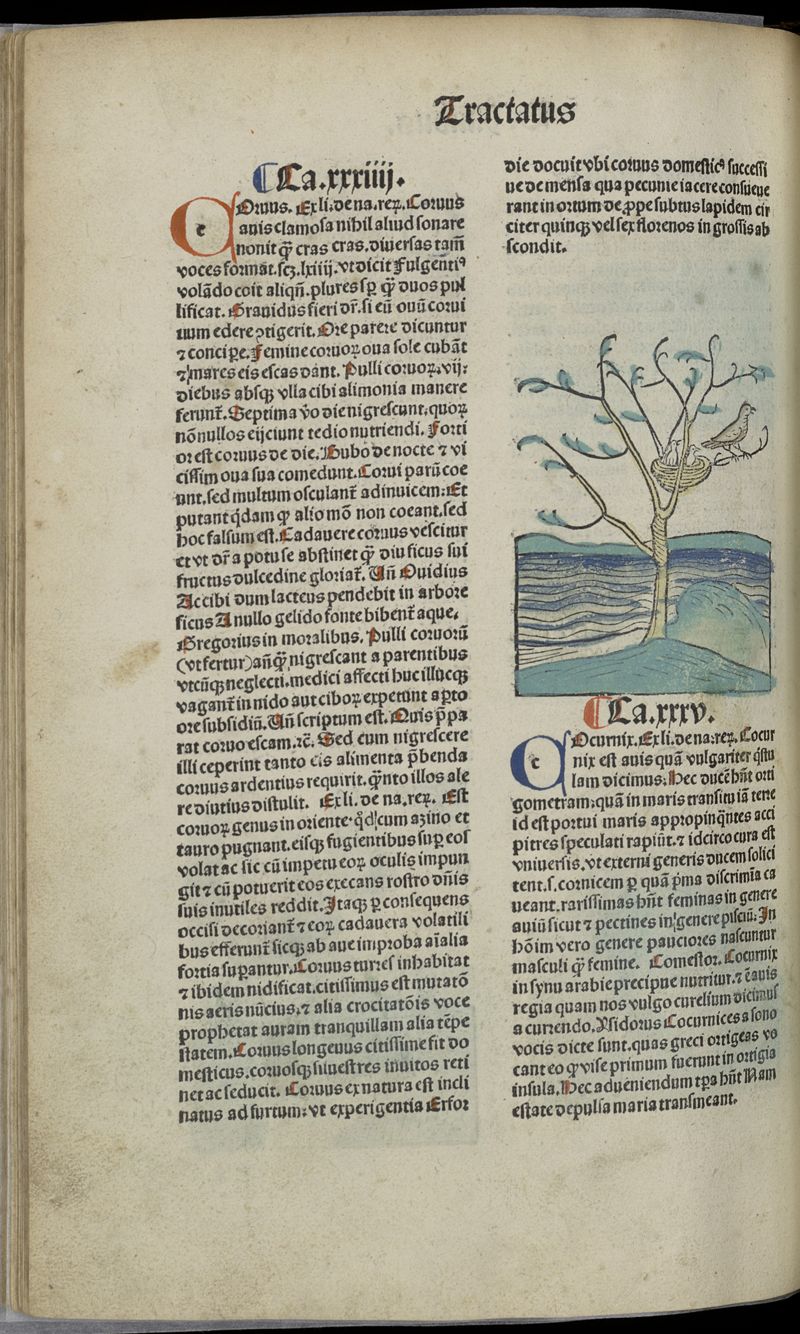 Tractatus
¶Ca.xxxiiij.
COruus. Ex li. de na. reꝝ. Coruus
auis clamosa nihil aliud sonare
nouit q̃ȝ cras cras. diuersas tam̃
voces format̃. scȝ. lxiiij. vt dicit Fulgenti⁹
volãdo coit aliqñ. plures sꝑ q̃ȝ duos pul
lificat. Grauidus fieri dr̃. si eũ ouũ corui
num edere ↄtigerit. Ore parere dicuntur
⁊ concipe. Femine coruoꝝ oua sole cubãt
⁊ mares eis escas dant. Pulli coruoꝝ. vij:
diebus absqȝ vlla cibi alimonia manere
ferunt̃. Septima v̊o die nigrescunt. quoꝝ
nõnullos eijciunt tedio nutriendi. Forti
or est coruus de die. Bubo de nocte ⁊ vi
cissim oua sua comedunt. Corui parũ coe
unt. sed multum osculant̃ adinuicem: Et
putant q̃dam ꝙ alio mõ non coeant. sed
hoc falsum est. Cadauere coruus vescitur
et vt dr̃ a potu se abstinet q̃ȝ diu ficus sui
fructus dulcedine gloriat̃. Uñ Ouidius
At tibi dum lacteus pendebit in arbore
ficus A nullo gelido fonte bibent̃ aque.
Gregorius in moralibus. Pulli coruorũ
(vt fertur) añq̃ȝ nigrescant a parentibus
vtcũqȝ neglecti. medici affecti huc illucqȝ
vagant̃ in nido aut ciboꝝ expetunt aꝑto
ore subsidiũ. Uñ scriptum est. Quis p̃pa
rat coruo escam. ⁊c̃. Sed cum nigrescere
illi ceperint tanto eis alimenta p̃benda
coruus ardentius requirit. q̃nto illos ale
re diutius distulit. Ex li. de na. reꝝ. Est
coruoꝝ genus in oriente. qd̃ cum azino et
tauro pugnant. eisqȝ fugientibus suꝑ eos
volat ac sic cũ impetu eoꝝ oculis impun
git ⁊ cũ potuerit eos execans rostro dñis
suis inutiles reddit. Itaqȝ ꝑ consequens
occisi decoriant̃ ⁊ eoꝝ cadauera volatili
bus efferunt̃ sicqȝ ab aue improba aĩalia
fortia suꝑantur. Coruus turres inhabitat
⁊ ibidem nidificat. citissimus est mutatõ
nis aeris nũcius. ⁊ alia crocitatõis voce
prophetat auram tranquillam alia tẽpe
statem. Coruus longeuus citissime fit do
mesticus. coruosqȝ siluestres inuitos reti
net ac seducit. Coruus ex natura est incli
natus ad furtum: vt experigentia Erfor
die docuit vbi coruus domestic⁹ successi
ue de mensa qua pecunie iacere consueue
rant in ortum de ꝓpe subtus lapidem cir
citer quinqȝ vel sex florenos in grossis ab
scondit.
¶Ca.xxxv.
COcurnix. Ex li. de na. reꝝ. Cocur
nix est auis quã vulgariter q̃stu
lam dicimus. Hec ducẽ hñt orti
gometram: quã in maris transitu iã terre
id est portui maris appropinq̃ntes acci
pitres speculati rapiũt. ⁊ idcirco cura est
vniuersis. vt externi generis ducem solici
tent. s. cornicem ꝑ quã p̃ma discrimĩa ca
ueant. rarissimas hñt feminas in genere
auiũ sicut ⁊ pectines in genere pisciũ: In
hõim vero genere pauciores nascuntur
masculi q̃ȝ femine. Comestor. Cocurnix
in synu arabie precipue nutritur. ⁊ ẽ auis
regia quam nos vulgo curelium dicimus
a currendo. Ysidorus Cocurnices a sono
vocis dicte sunt. quas greci ortigeas vo
cant eo ꝙ vise primum fuerunt in ortigia
insula. Hec adueniendum tp̃a hñt Nam
estate depulsa maria transmeant.